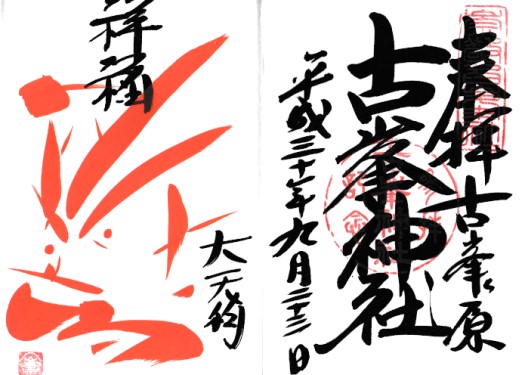 奉拝
古峯原
古峯神社
平成三十年九月二十三日
祥福
大天狗